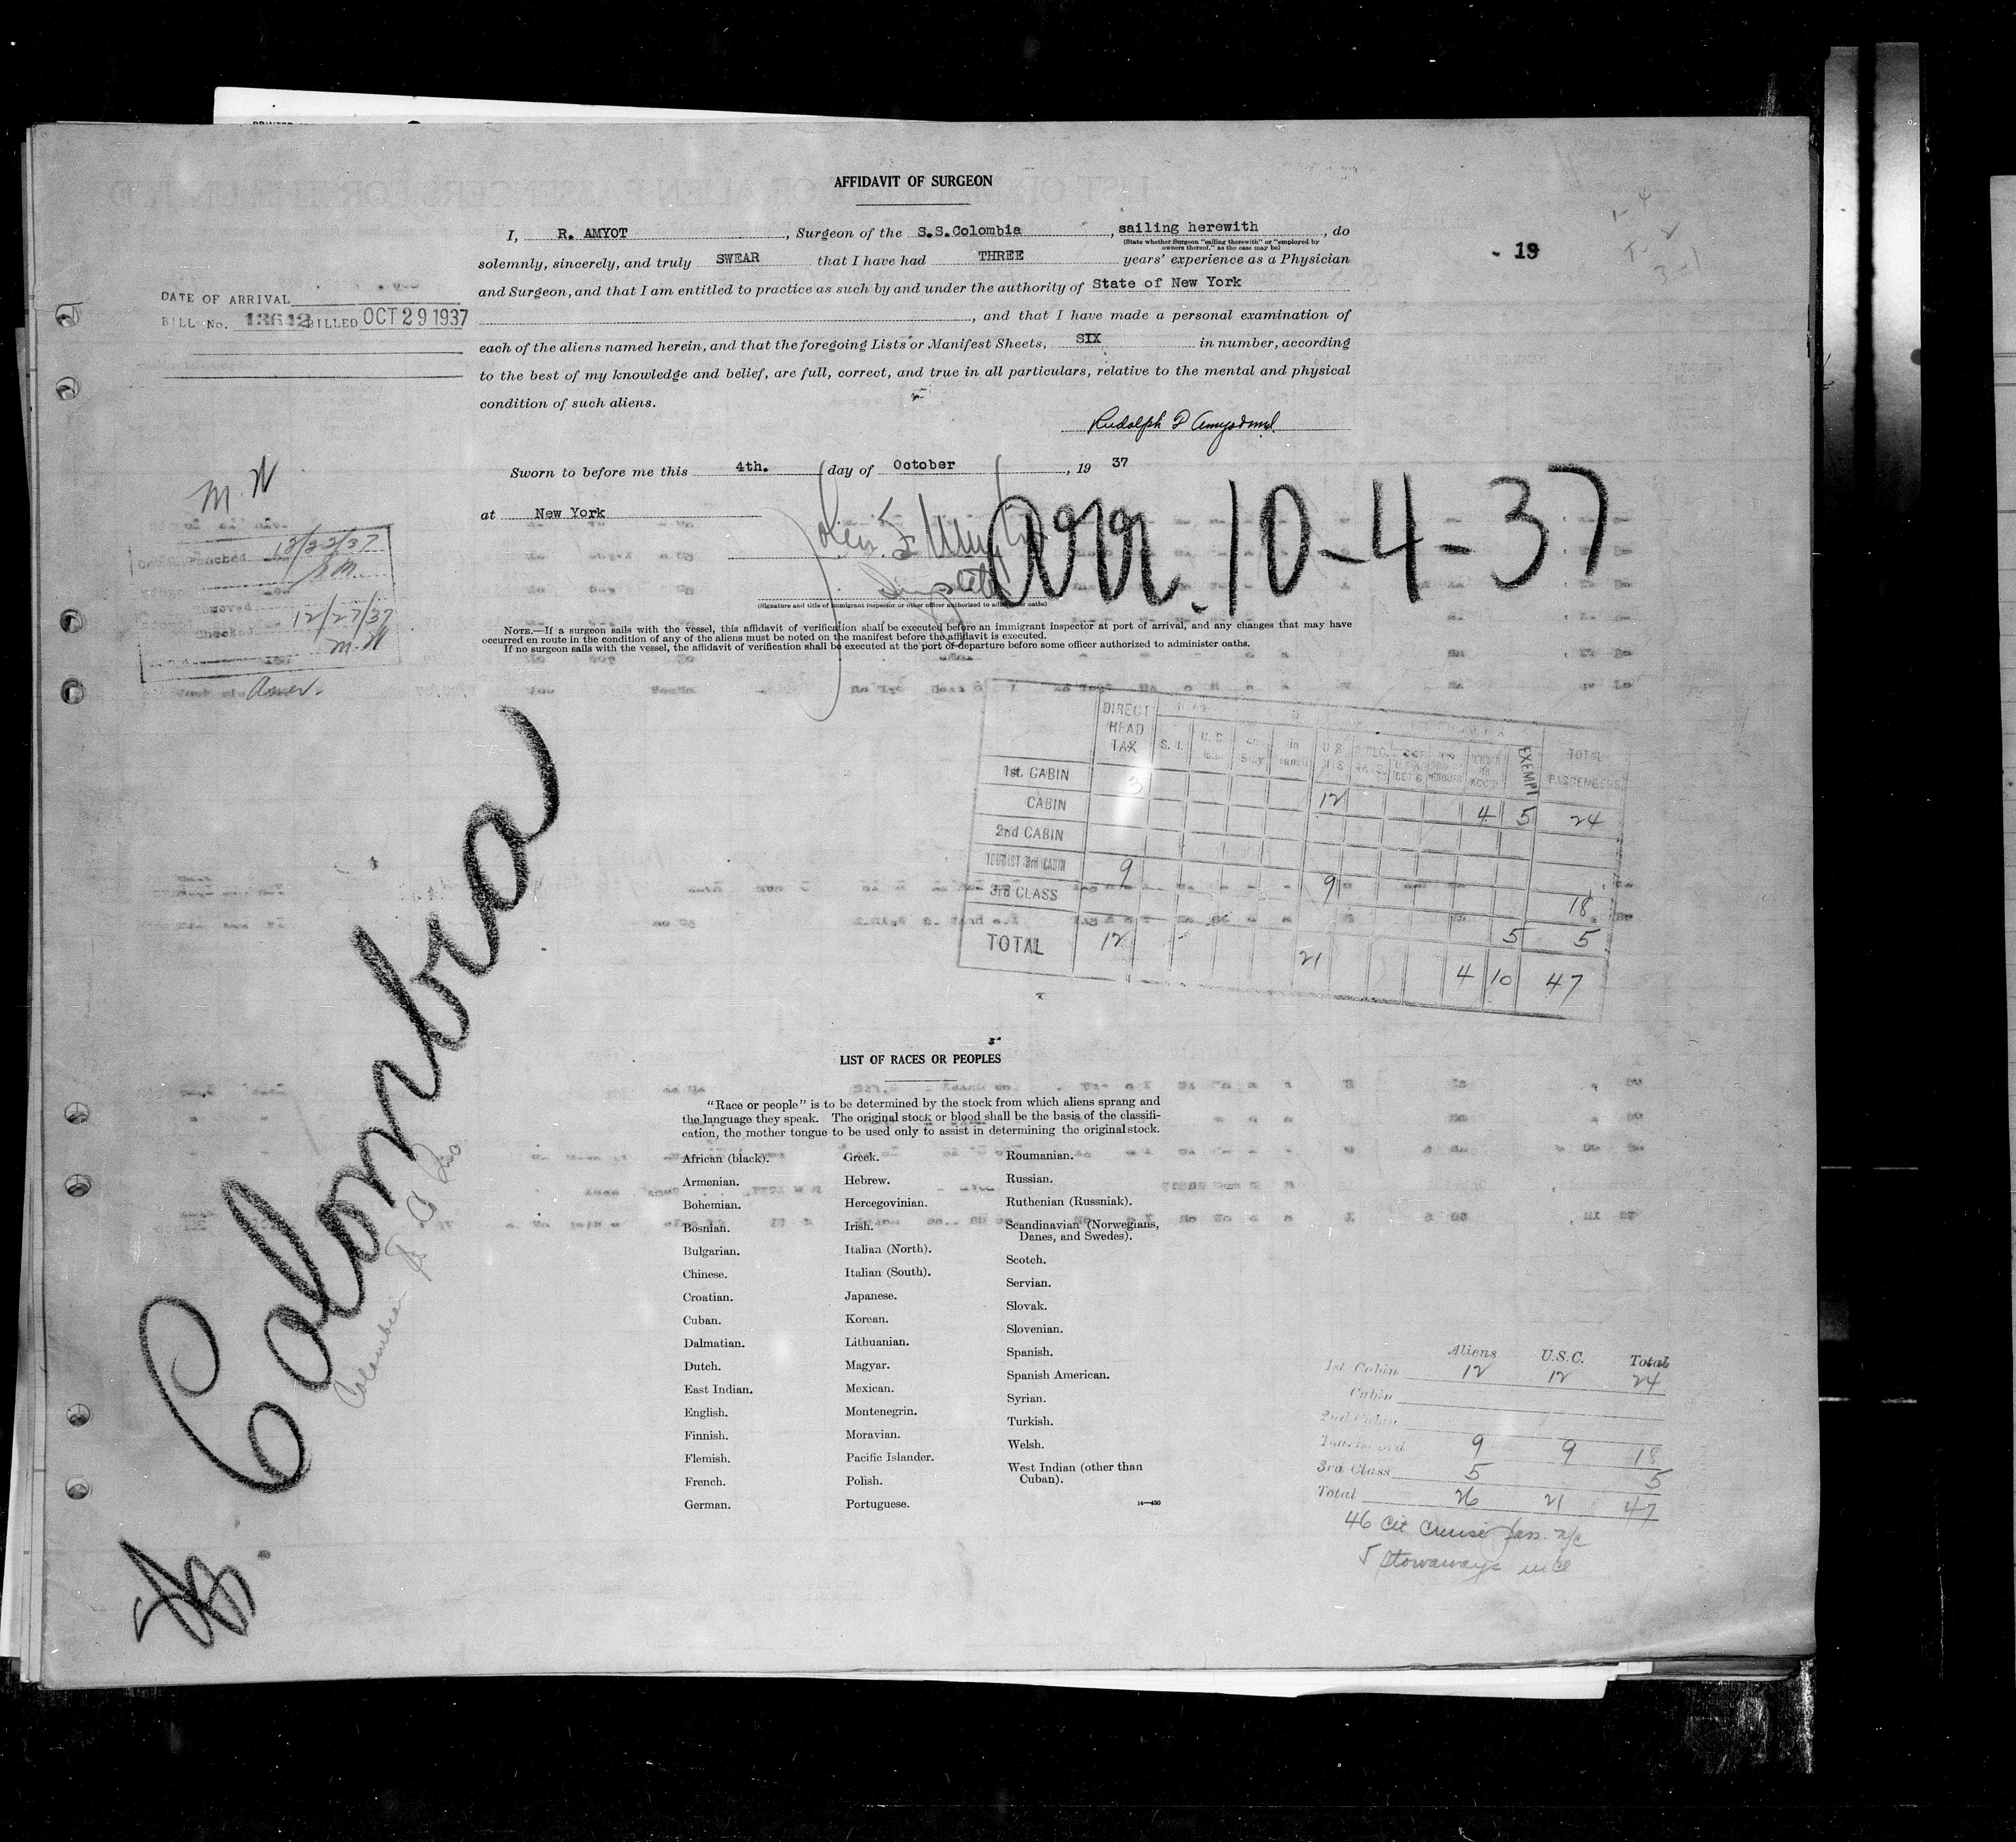 AFFIDAVIT OF SURGEON
I, R. AMYOT, Surgeon of the S.S.Colombia, sailing herewith, do
(State whether Surgeon "sailing therewith" or "employed by
owners thereof," as the case may be)
- 19
solemnly, sincerely, and truly SWEAR that I have had THREE years' experience as a Physician
and Surgeon, and that I am entitled to practice as such by and under the authority of State of New York
, and that I have made a personal examination of
each of the aliens named herein, and that the foregoing Lists or Manifest Sheets, SIX in number, according
to the best of my knowledge and belief, are full, correct, and true in all particulars, relative to the mental and physical
condition of such aliens.
DATE OF ARRIVAL
BILL No. 13642 BILLED OCT 29 1937
Rudolph
Sworn to before me this 4th. day of October, 19 37
at New York
Arr. 10-4-37
(Signature and title of immigrant inspector or other officer authorized to administer oaths)
NOTE.—If a surgeon sails with the vessel, this affidavit of verification shall be executed before an immigrant inspector at port of arrival, and any changes that may have
occurred en route in the condition of any of the aliens must be noted on the manifest before the affidavit is executed.
If no surgeon sails with the vessel, the affidavit of verification shall be executed at the port of departure before some officer authorized to administer oaths.
M.W
12/22/37
Checked 12/27/37
M.W
DIRECT HEAD TAX
EXEMPT
TOTAL PASSENGERS
1st. CABIN 3
CABIN 12 4 5 24
2nd CABIN
TOURIST 3rd CABIN 9 9
3rd CLASS 18
5 5
TOTAL 12 21 4 10 47
Colombia
LIST OF RACES OR PEOPLES
"Race or people" is to be determined by the stock from which aliens sprang and
the language they speak. The original stock or blood shall be the basis of the classifi-
cation, the mother tongue to be used only to assist in determining the original stock.
African (black).
Armenian.
Bohemian.
Bosnian.
Bulgarian.
Chinese.
Croatian.
Cuban.
Dalmatian.
Dutch.
East Indian.
English.
Finnish.
Flemish.
French.
German.
Greek.
Hebrew.
Hercegovinian.
Irish.
Italian (North).
Italian (South).
Japanese.
Korean.
Lithuanian.
Magyar.
Mexican.
Montenegrin.
Moravian.
Pacific Islander.
Polish.
Portuguese.
Roumanian.
Russian.
Ruthenian (Russniak).
Scandinavian (Norwegians,
Danes, and Swedes).
Scotch.
Servian.
Slovak.
Slovenian.
Spanish.
Spanish American.
Syrian.
Turkish.
Welsh.
West Indian (other than
Cuban).
14—430
Aliens U.S.C. Total
1st. Cabin 12 12 24
Cabin
2nd Cabin
Tourist 3rd 9 9 18
3rd Class 5 5
Total 26 21 47
46 Cit Cruise pass.
5 stowaways incl